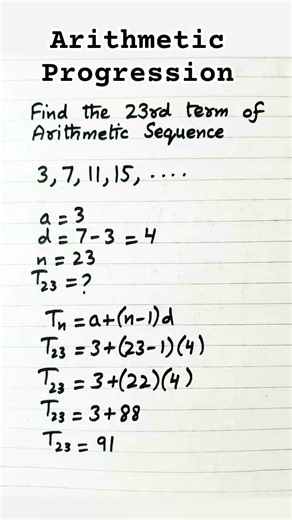 Arithmetic
Progression
Find the 23rd term of
Arithmetic Sequence
3, 7, 11, 15, ....
a = 3
d = 7-3 = 4
n = 23
T₂₃ = ?
Tₙ = a+(n-1)d
T₂₃ = 3+(23-1)(4)
T₂₃ = 3+(22)(4)
T₂₃ = 3+88
T₂₃ = 91